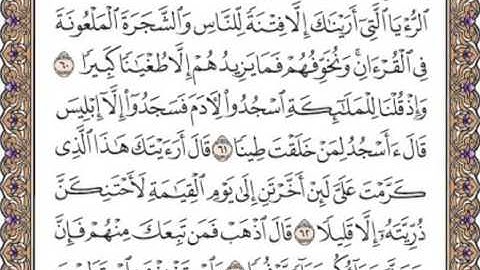 ٱلرُّءۡيَا ٱلَّتِيٓ أَرَيۡنَٰكَ إِلَّا فِتۡنَةٗ لِّلنَّاسِ وَٱلشَّجَرَةَ ٱلۡمَلۡعُونَةَ
فِي ٱلۡقُرۡءَانِۚ وَنُخَوِّفُهُمۡ فَمَا يَزِيدُهُمۡ إِلَّا طُغۡيَٰنٗا كَبِيرٗا ٦٠
وَإِذۡ قُلۡنَا لِلۡمَلَٰٓئِكَةِ ٱسۡجُدُواْ لِأٓدَمَ فَسَجَدُوٓاْ إِلَّآ إِبۡلِيسَ
قَالَ ءَأَسۡجُدُ لِمَنۡ خَلَقۡتَ طِينٗا ٦١ قَالَ أَرَءَيۡتَكَ هَٰذَا ٱلَّذِي
كَرَّمۡتَ عَلَيَّ لَئِنۡ أَخَّرۡتَنِ إِلَىٰ يَوۡمِ ٱلۡقِيَٰمَةِ لَأَحۡتَنِكَنَّ
ذُرِّيَّتَهُۥٓ إِلَّا قَلِيلٗا ٦٢ قَالَ ٱذۡهَبۡ فَمَن تَبِعَكَ مِنۡهُمۡ فَإِنَّ